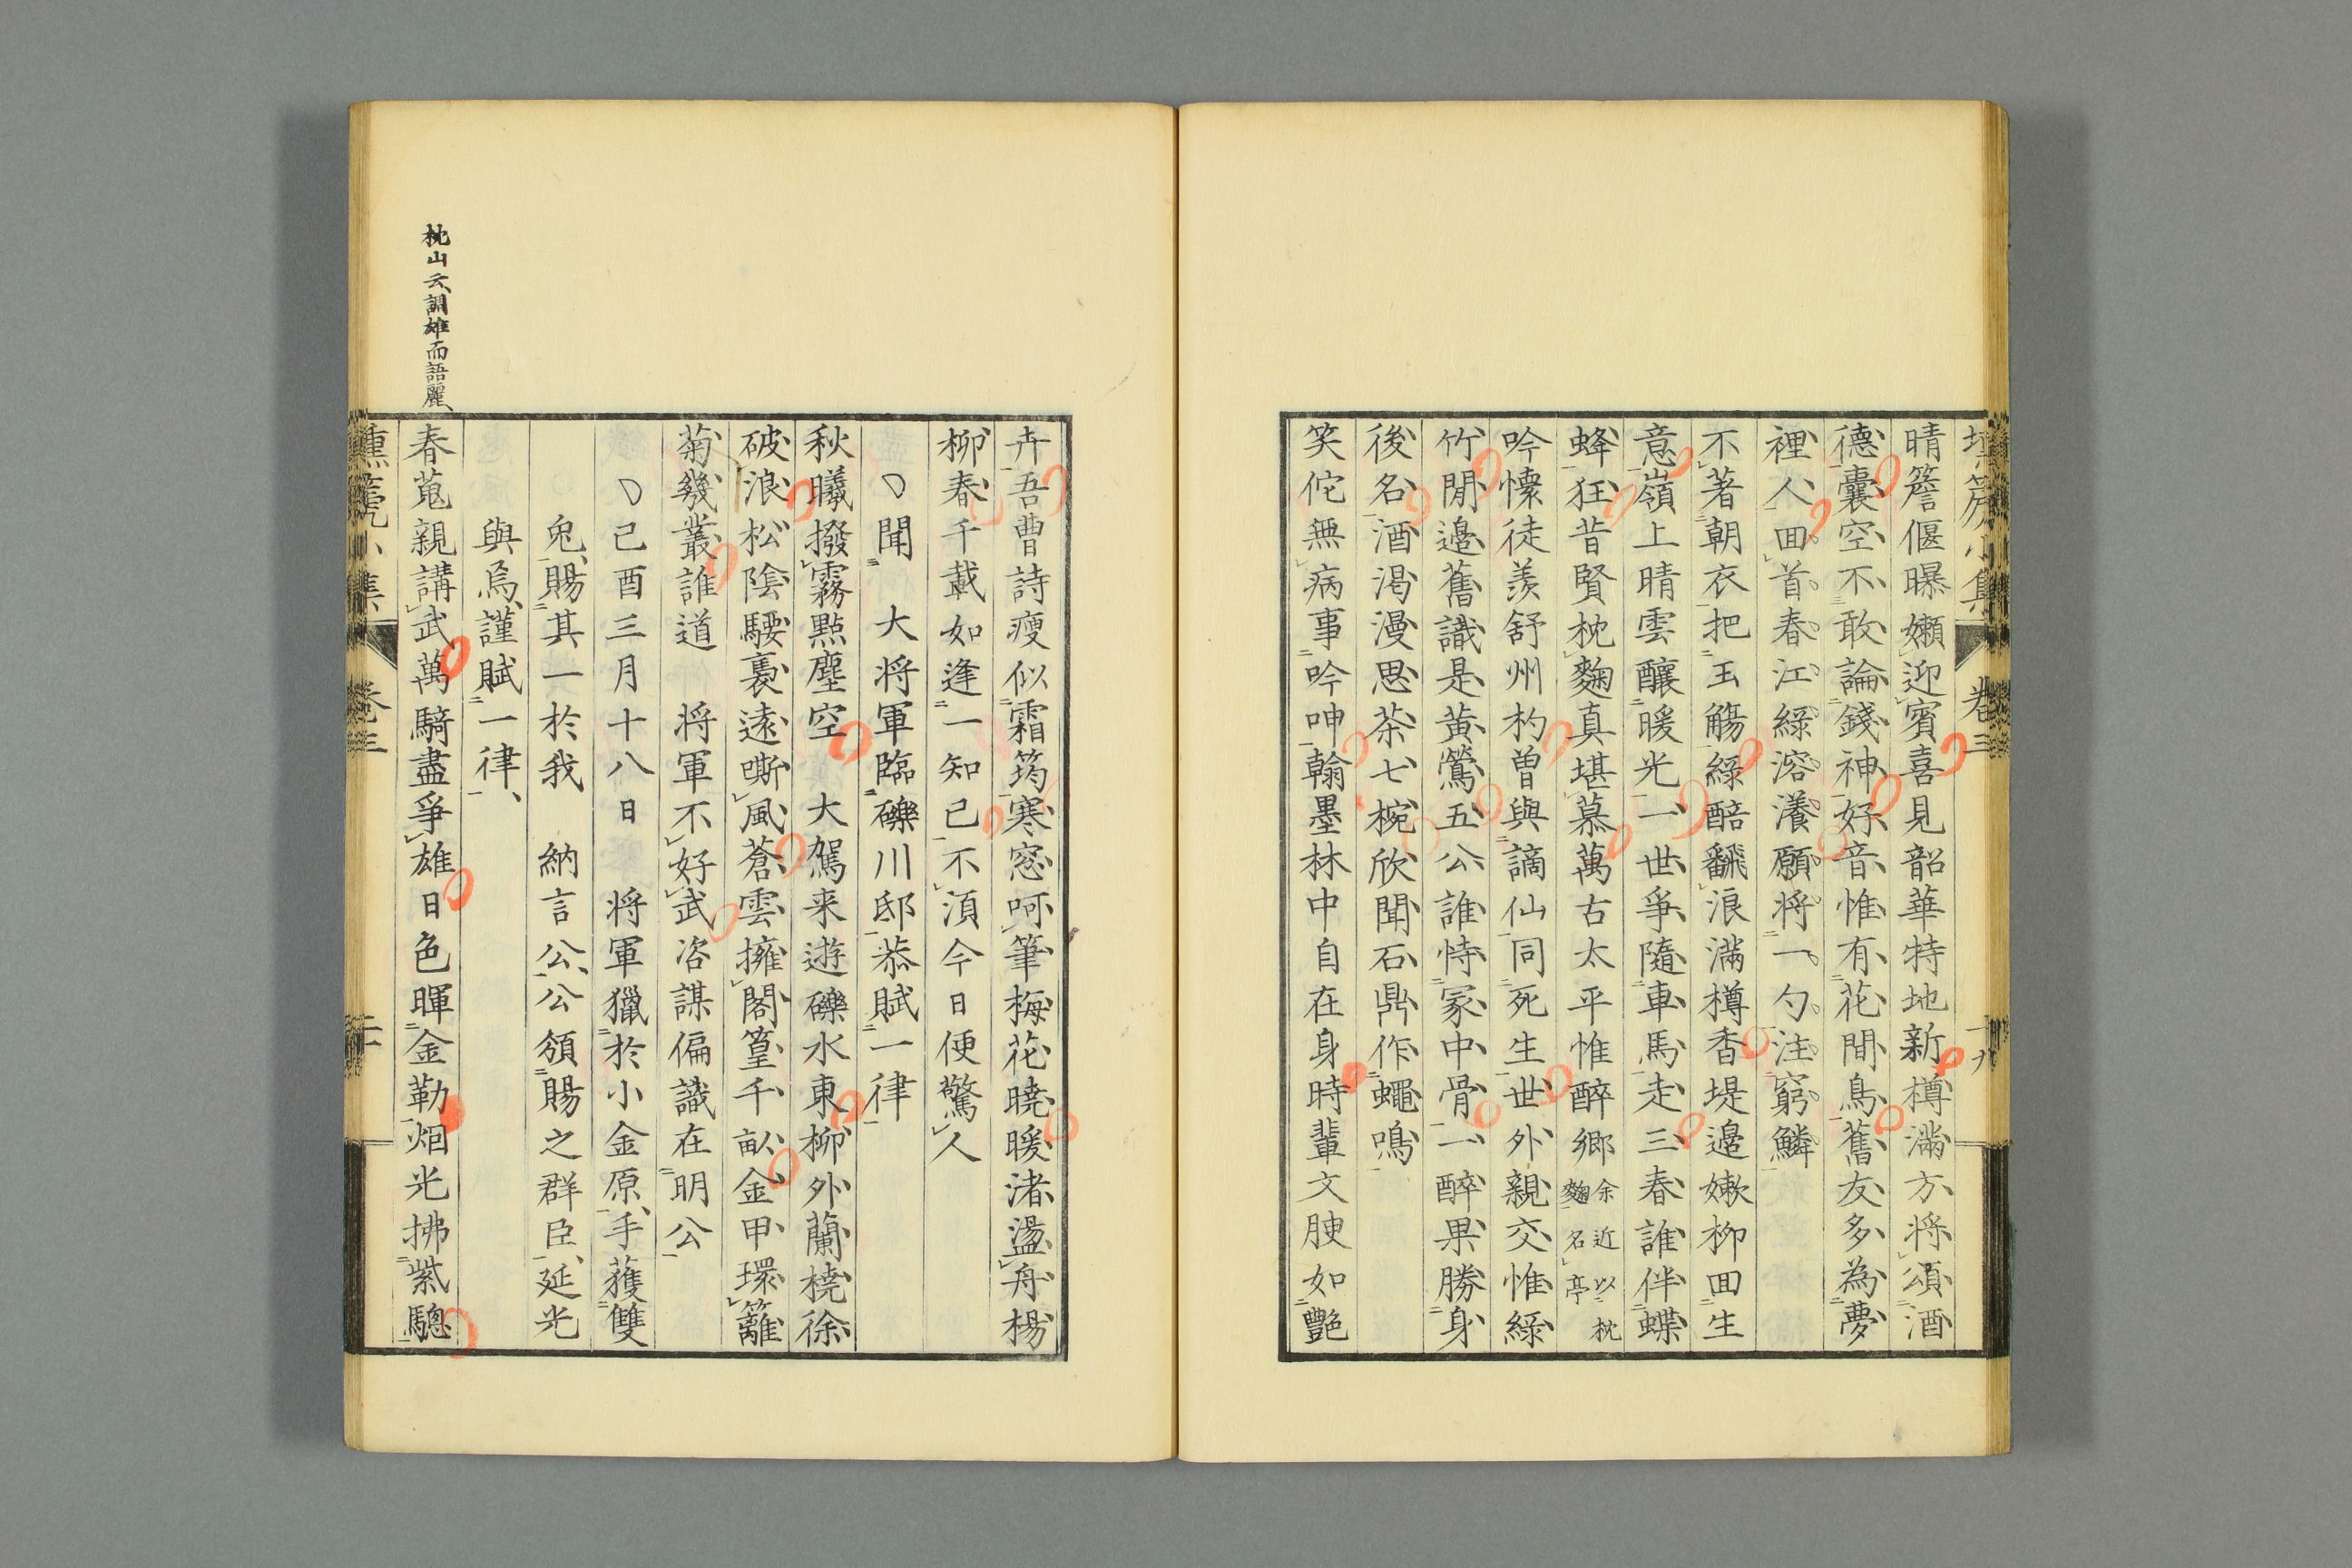 晴簷偃曝嬾迎賓喜見韶華特地新樽滿方將頌酒
德囊空不敢論錢神好音惟有花間鳥舊友多為夢
裡人回首春江綠溶瀁願將一勺注窮鱗
不著朝衣把玉觴綠醅翻浪滿樽香堤邊嫩柳回生
意嶺上晴雲釀暖光一世爭隨車馬走三春誰伴蝶
蜂狂昔賢枕麴真堪慕萬古太平惟醉鄉
余近以枕
麴名亭
吟懷徒羨舒州杓曽與謫仙同死生世外親交惟綠
竹閒邉舊識是黃鶯五公誰恃冢中骨一醉果勝身
後名酒渇漫思茶七椀欣聞石鼎作蠅鳴
笑佗無病事吟呻翰墨林中自在身時輩文腴如艷
卉吾曹詩瘦似霜筠寒窓呵筆梅花曉暖渚盪舟楊
柳春千載如逢一知已不須今日便驚人
聞　大将軍臨礫川邸恭賦一律
秋曦撥霧點塵空　大駕来遊礫水東柳外蘭橈徐
破浪松陰騕褭遠嘶風蒼雲擁閣篁千畝金甲環籬
菊幾叢誰道　将軍不好武咨謀偏識在明公
己酉三月十八日　将軍獵於小金原手獲雙
兎賜其一於我　納言公公頒賜之群臣延光
與焉謹賦一律
春蒐親講武萬騎盡爭雄日色暉金勒烟光拂紫驄
枕山云調雄而語麗
卷三